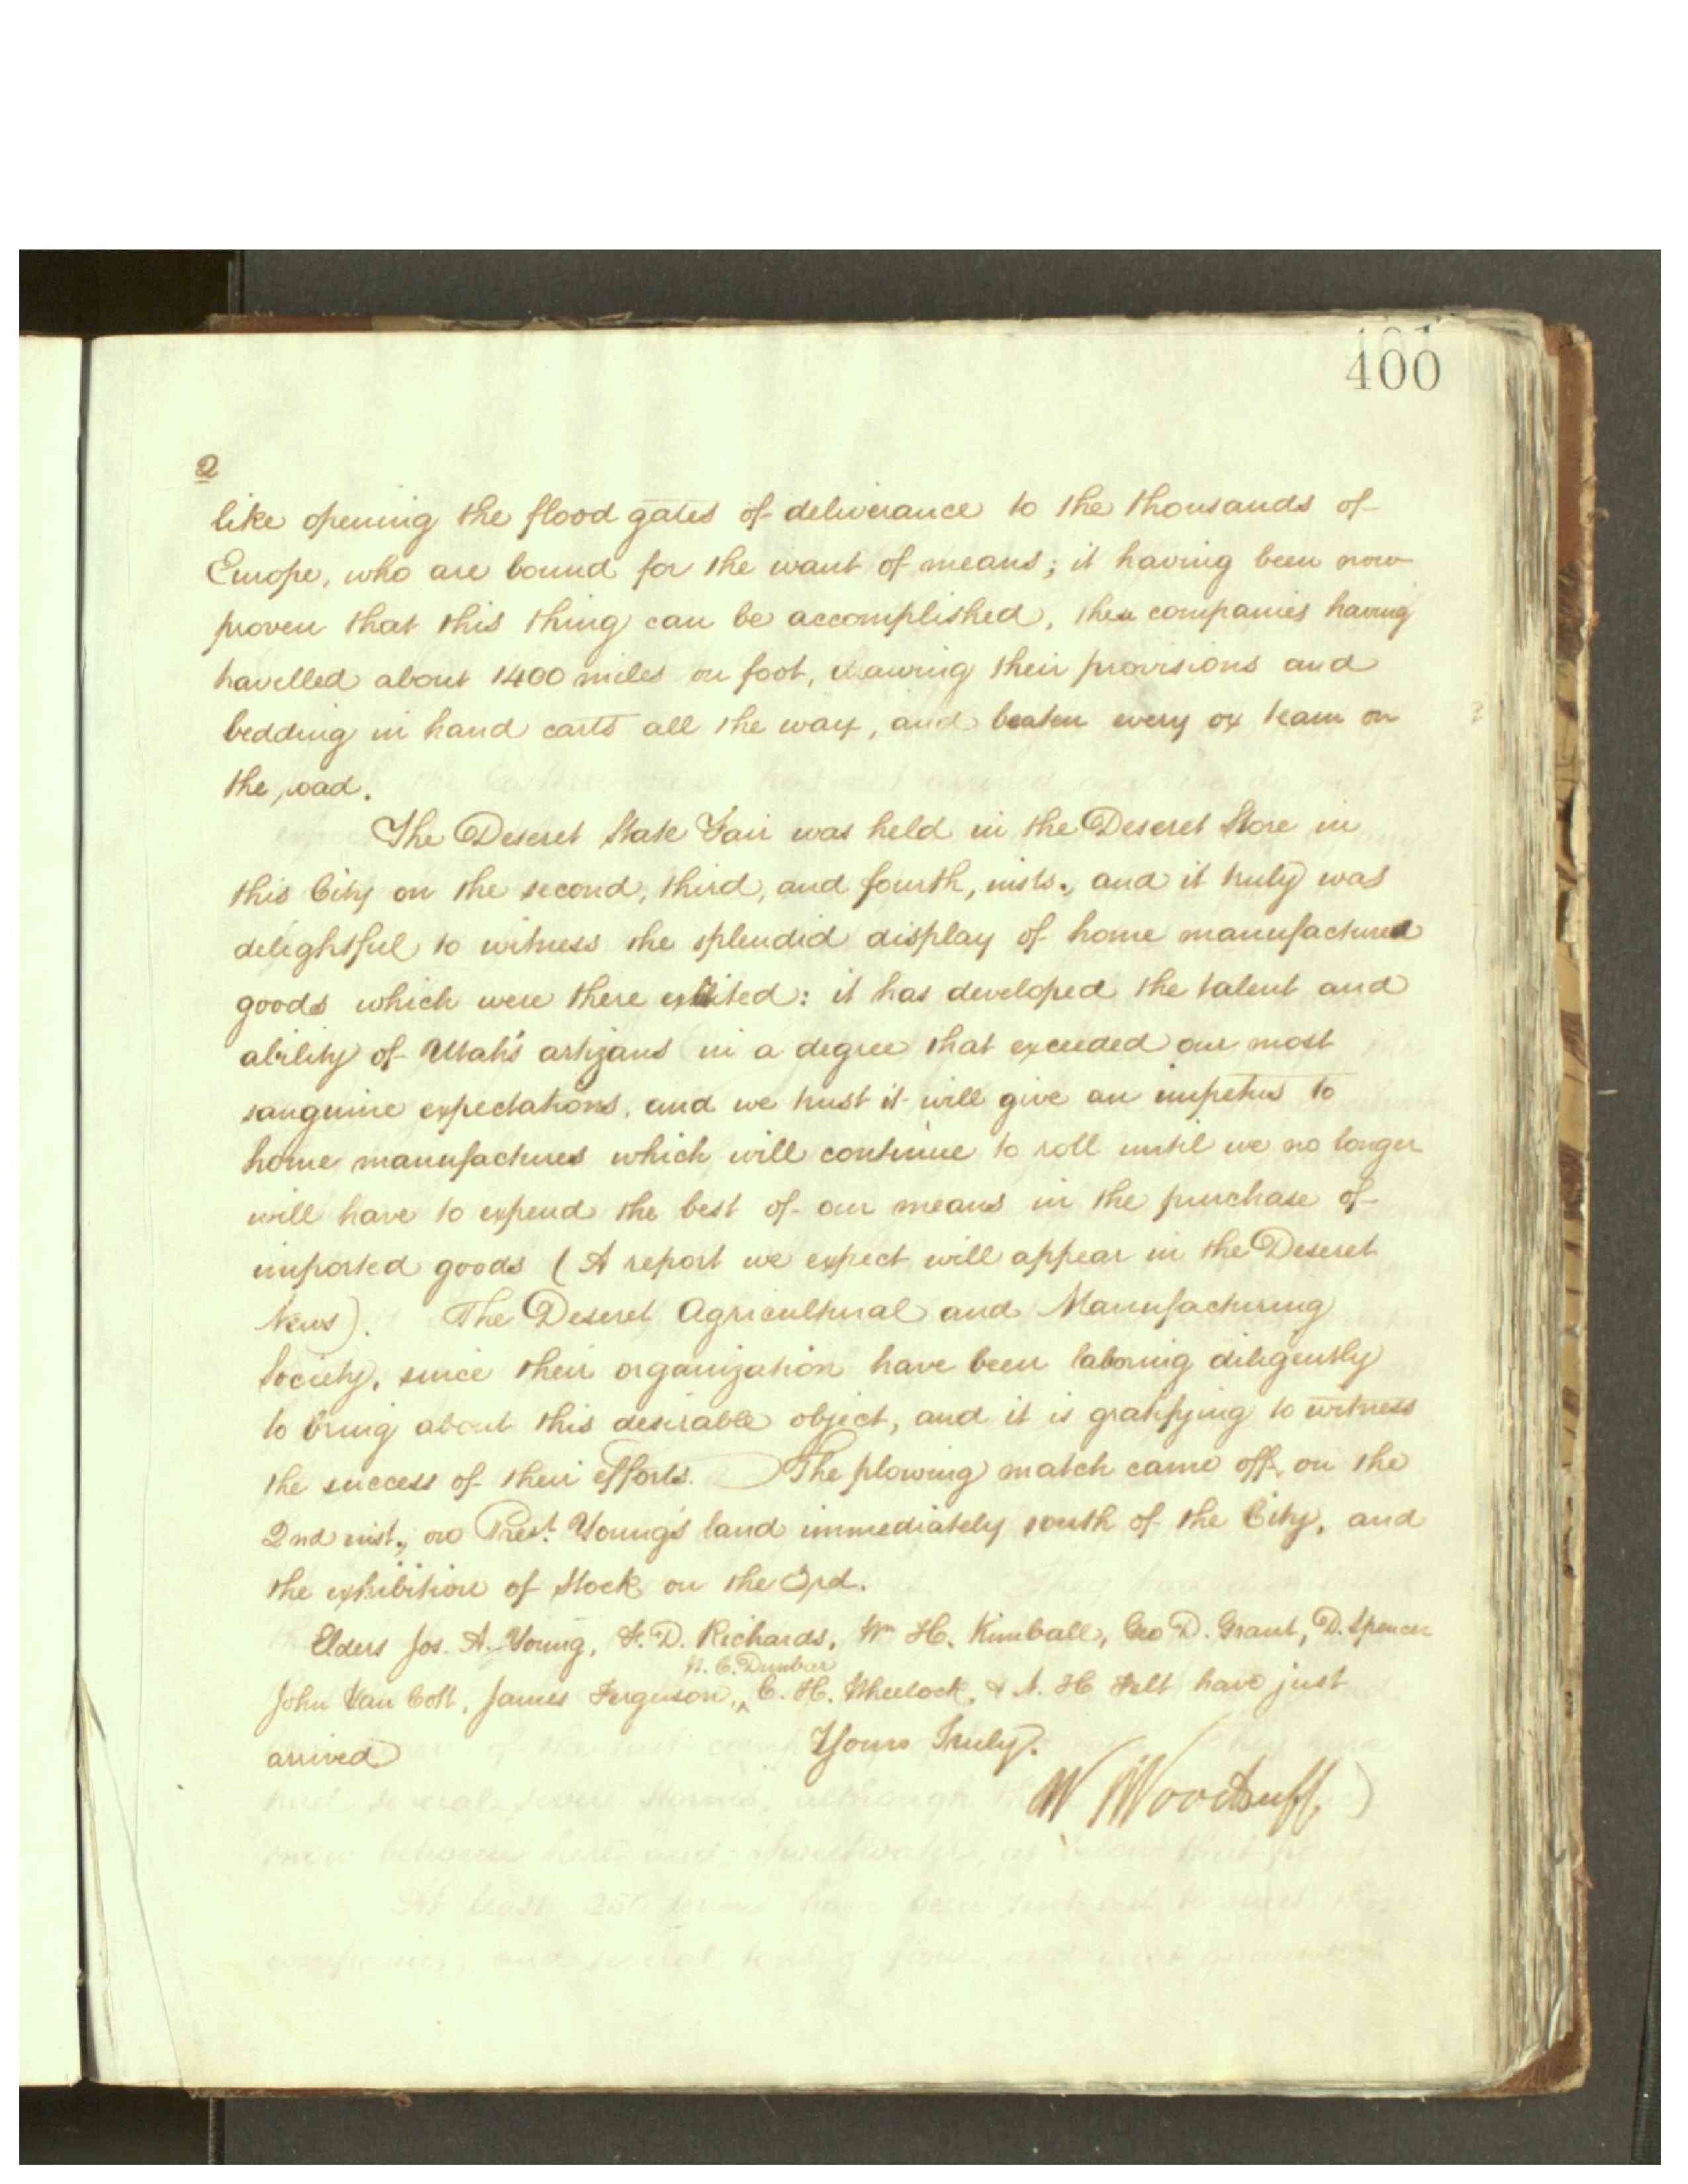 400
2
like opening the flood gates of deliverance to the thousands of
Europe, who are bound for the want of means; it having been now
proven that this thing can be accomplished, these companies having
travelled about 1400 miles on foot, drawing their provisions and
bedding in hand carts all the way, and beaten every ox team on
the road.
The Deseret State Fair was held in the Deseret Store in
this City on the second, third, and fourth, insts., and it truly was
delightful to witness the splendid display of home manufactured
goods which were there exhited: it has developed the talent and
ability of Utah's artizans in a degree that exceeded our most
sanguine expectations, and we trust it will give an impetus to
home manufactures which will continue to roll until we no longer
will have to expend the best of our means in the purchase of
imported goods (A report we expect will appear in the Deseret
News). The Deseret Agricultural and Manufacturing
Society, since their organization have been laboring diligently
to bring about this desirable object, and it is gratifying to witness
the success of their efforts. The plowing match came off on the
2nd inst., on Prest. Young's land immediately south of the City, and
the exhibition of Stock on the 3rd.
Elders Jos. A. Young, F. D. Richards, Wm H. Kimball, Geo D. Grant, D. Spencer
W. C. Dunbar
John Van Cott, James Ferguson, ^ C. H. Wheelock, & N. H Felt have just
arrived
Yours Truly.
W Woodruff